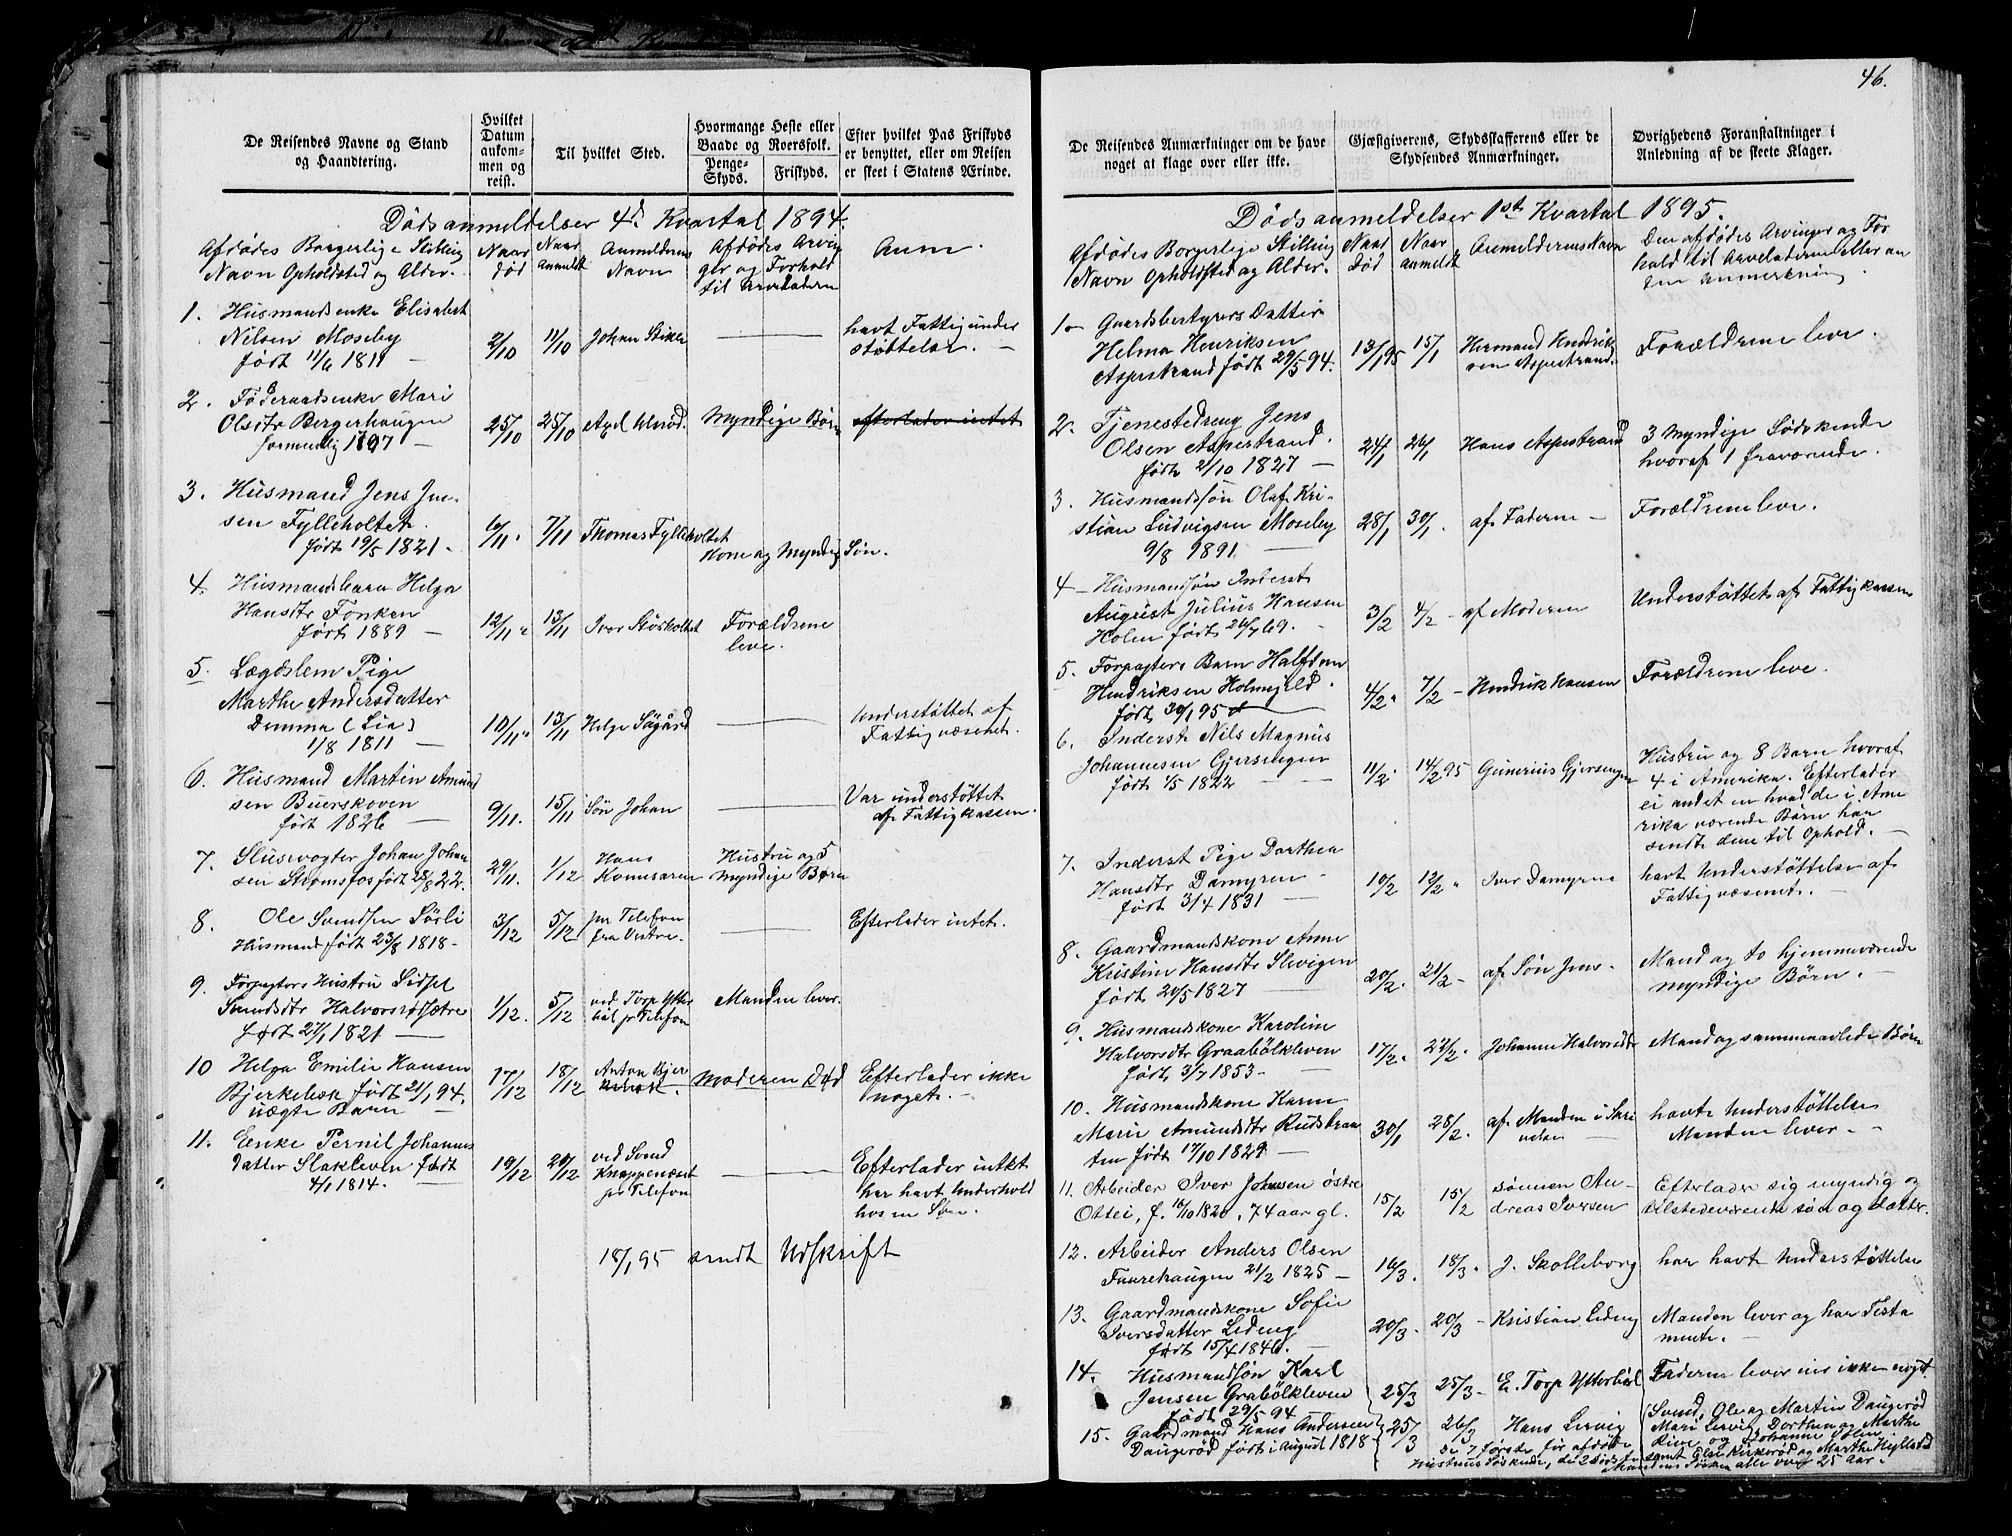 46.
De Reisendes Navne og Stand og Haandtering.
Hvilket Datum ankommen og reist.
Til hvilket Sted.
Hvormange Heste eller Baade og Roersfolk.
Penge-Skyds.
Friskyds.
Efter hvilket Pas Friskyds er benyttet, eller om Reisen er skeet i Statens Ærinde.
Dødsanmeldelser 4d. Kvartal 1894.
Afdødes Borgerlige Stilling Navn Opholdsted og Alder.
Naar død
Naar Anmeldt
Anmelderens Navn
Afdødes Arvinger og Forhold til Arveladeren
Anm.
1. Husmandsenke Elisabet
Nilsen Moseby
født 11/6 1811 —
2/10 11/10 Johan Stiker — havt Fattigunder
støttelse. —
2. Føderaadsenke Mari
Olsdtr Bergerhaugen
formentlig 1797 —
25/10 25/10 Axel Ulsrød. Myndige Børn efterlader intet
3. Husmand Jens Jensen
Fylleholtet.
født 19/5 1821.
6/11. 7/11 Thomas Fylleholtet
Kone og Myndig Søn.
4. Husmandsbarn Helga
Hansdtr Fonken
født 1889 —
12/11 13/11 Ivar Støsholtet Forældrene
leve.
5. Lægdslem Pige
Marthe Andersdatter
Demma (Lia)
1/8 1811 —
10/11 13/11 Helge Sögård — Understøttet af
Fattigvæsenet.
6. Husmand Martin Amund
sen Buerskoven
født 1826 —
9/11. 15/11 Søn Johan — Var understøttet
af Fattigkassen.
7. Slusevogter Johan Johan
sen Strømsfos født 28/8 22.
29/11. 1/12 Hans
Kornsæren Hustru og 5
myndige Børn
8. Ole Svendsen Sörli
Husmand, født 23/8 1818 -
3/12 5/12 pr Telefon
fra Vestre. — Efterlader intet.
9. Forpagters Hustru Sidsel
Svendsdtr Halvorsrødsætre
født 27/1 1821 —
1/12. 5/12 ved Torp Ytter
böl pr Telefon Manden lever.
10 Helga Emilie Hansen
Bjerkebæk født 21/1 94.
uægte Barn —
17/12 18/12 Anton Bjer
kebæk. Moderen Død Efterlader ikke
noget. —
11. Enke Pernil Johannes
datter Slakleven født
4/1 1814. —
19/12 20/12 ved Svend
Knappenæset
pr Telefon — Efterlader intet
har havt Underhold
hos en Søn.
18/1 95 sendt Udskrift
De Reisendes Anmærkninger om de have noget at klage over eller ikke.
Gjæstgiverens, Skydsstafferens eller de Skydsendes Anmærkninger.
Øvrighedens Foranstaltninger i Anledning af de skeete Klager.
Dødsanmeldelser 1st Kvartal 1895.
Afdødes Borgerlige Stilling
Navn Opholdsted og Alder.
Naar Død
Naar Anmeldt
Anmelderens Navn
Den afdødes Arvinger og For
hold til Arveladeren eller an
den Anmerkning
1 — Gaardsbertyrers Datter
Helma Henriksen
Aspestrand født 29/5 94.
13/1 95 15/1 Hermand Hendrik
sen Aspestrand. Forældrene leve.
2. Tjenestedreng Jens
Olsen Aspestrand.
født 2/10 1827 —
24/1 26/1 Hans Aspestrand 3 Myndige Södskende
hvoraf 1 fraværende.
3. Husmandssøn Olaf Kri-
stian Ludvigsen Moseby
9/8 1891. —
28/1 30/1. af Faderen — Forældrene leve.
4 — Husmandsøn Inderst
August Julius Hansen
Holen født 26/7 69. —
3/2 4/2 - af Moderen Understøttet af Fattigkassen
5. Forpagters Barn Halfdan
Hendriksen Holmegild.
født 30/1 95
4/2. 7/2 - Hendrik Hansen Forældrene leve.
6. Inderst Nils Magnus
Johannesen Gjersengen
født 1/5 1822 —
11/2. 14/2 95 Gunerius Gjersengen Hustru og 8 Børn hvoraf
4 i Amerika. Efterlader
ei andet en hvad de i Ame
rika værende Børn har
sendt dem til Ophold. —
7. Inderst Pige Dorthea
Hansdtr Damyren —
født 3/4 1831 —
10/2 12/2 Iver Damyren havt Understøttelse af
Fattigvæsenet. —
8. Gaardmandskone Anne
Kristine Hansdtr Slevigen
født 20/5 1827 —
20/2. 21/2 - af Søn Jens. Mand og to hjemmeværende
myndige Börn. —
9. Husmandskone Karoline
Halvorsdtr Graabölkleven
født 3/7 1853 -
17/2. 22/2. Johanne Halvorsdtr Mand og sammenavlede Børn
10. Husmandskone Karen
Marie Amundsdtr Rudskaa
ten født 17/10 1829
30/1 28/2. af Manden i Skri
velse — havt Understøttelse
Manden lever. —
11. Arbeider Iver Johnsen østre
Ottei, f. 16/10 1820, 74 aar gl.
15/2 15/2 sønnen An-
dreas Iversen Efterlader sig myndig og
tilstedeværende søn og datter.
12. Arbeider Anders Olsen
Faarehaugen 21/2 1825 —
16/3. 18/3. J. Skolleborg har havt Understøttelse
13. Gaardmandskone Sofie
Iversdatter Lideng
født 15/4 1846.
20/3. 20/3 - Kristian Lideng Manden lever og har Testa
mente. —
14. Husmandsön Karl
Jensen Grabölkleven
født 29/5 94
25/3 25/3 - E. Torp Ytterböl Faderen lever eis ikke noget
15. Gaardmand Hans Andersen
Daugerød født i August 1818
25/3 26/3 Hans Lervig
de 7 første før afdøde
Hustrus Søskende, de 2 sidste
Mandens Søsken alle over 25 Aar.
Svend, Ole og Martin Daugerød
Mari Lervig Dorthea og Marthe
Rive og Johanne Odlen.
samt Else Kirkerød og Marthe Hyllestad